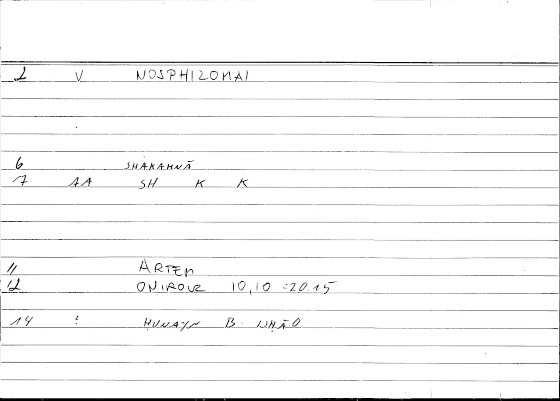 2 V NOSPHIZOMAI
6 SHAKAKNĀ
7 AA SH K K
11 ARTEM
12 ONIROUR 10,10 = 20.15
14 : HUNAYN B.